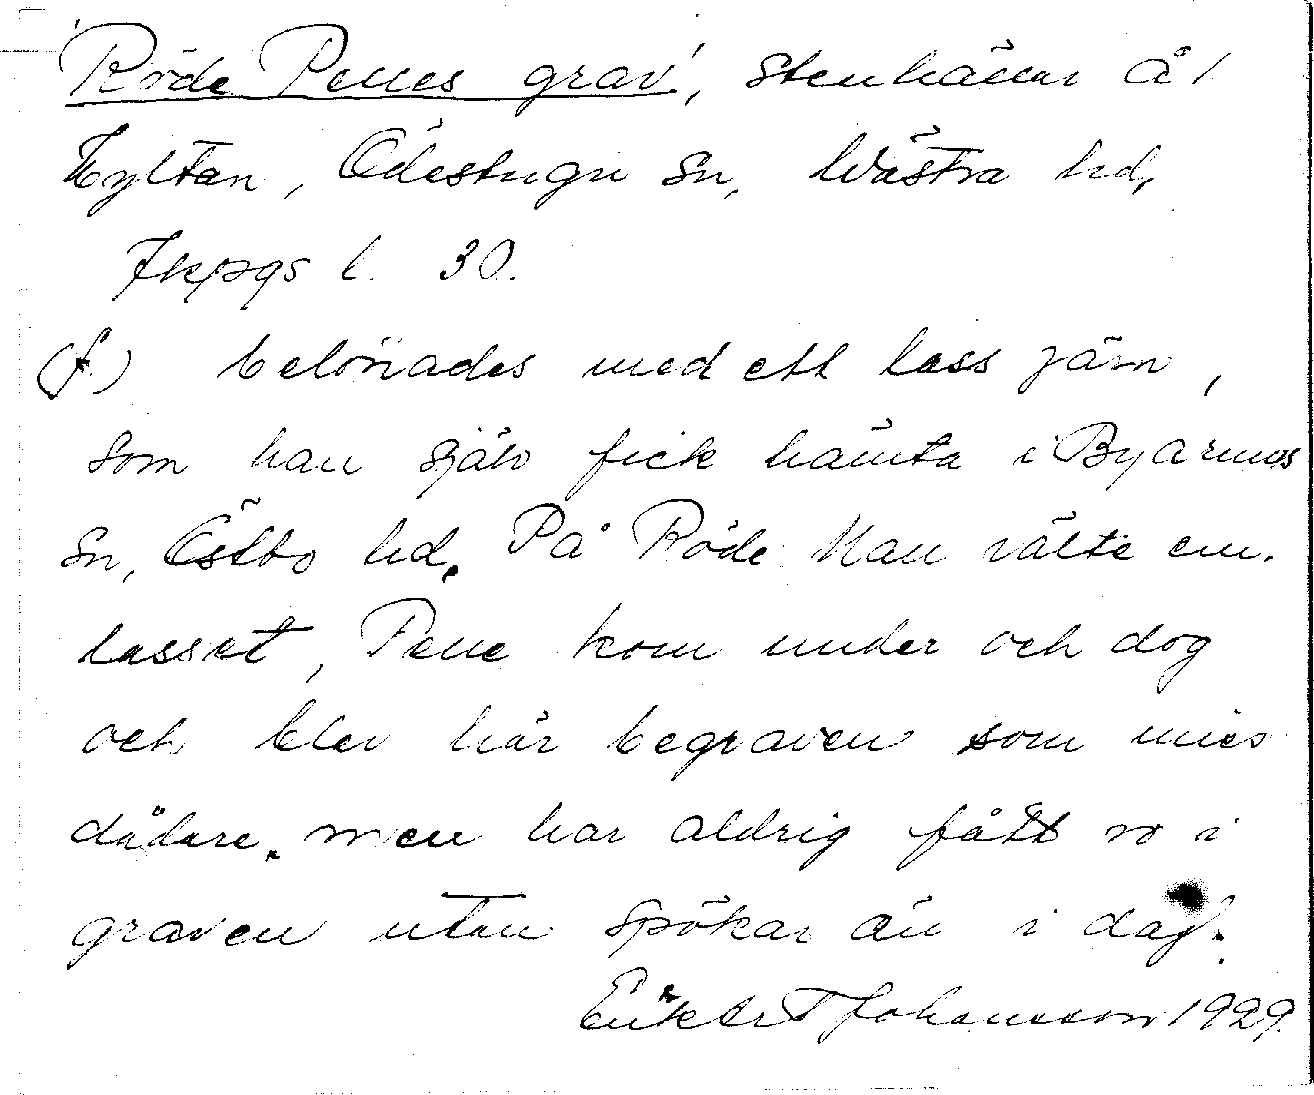 'Röde Penes grav', stenhäll å 1
Hyltan, Ödestugu sn, Västra hd,
Jkpgs l. 30.
(f.) belönades med ett lass järn,
som han själv fick hämta i Byarums
sn, Östbo hd. På Röde Mau välte em.
lasset, Pene kom under och dog
och blev här begraven som miss
dådare. men har aldrig fått ro i
graven utan spökar än i dag.
Johansson 1929.